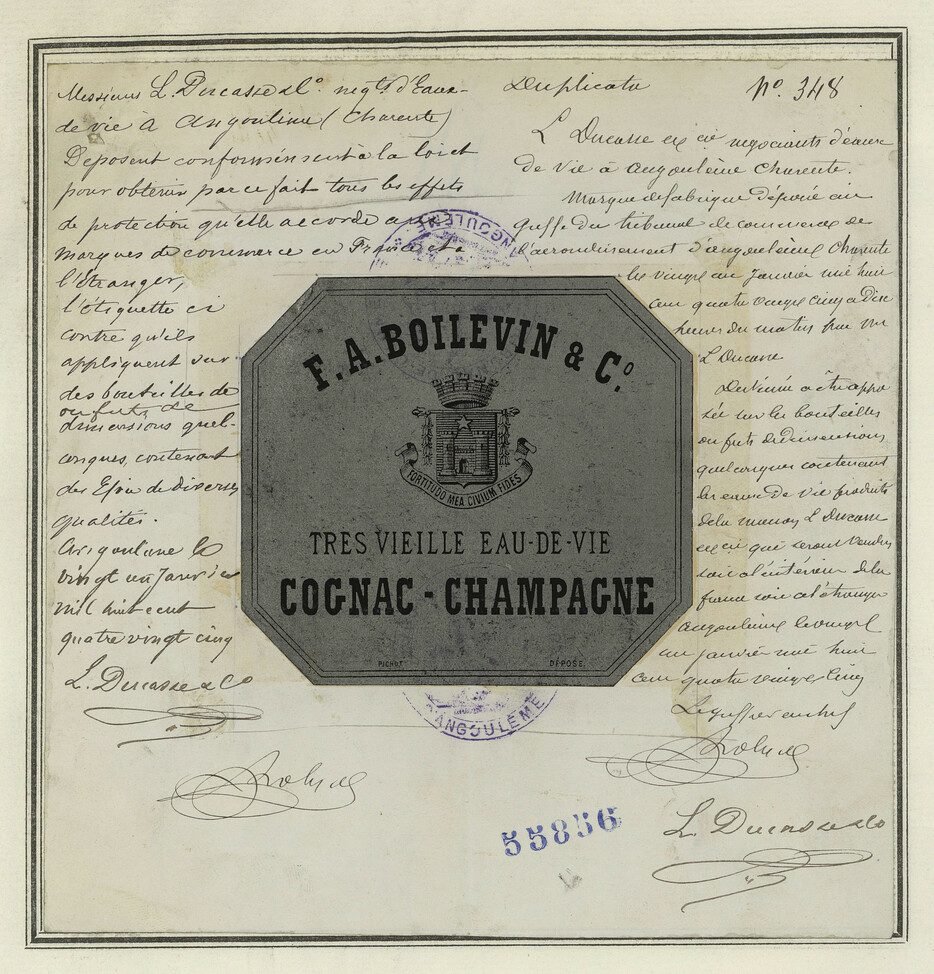 Messieurs L. Ducasse & Cº negts d'Eaux-
de vie à Angoulême (Charente)
Déposent conformément à la loi et
pour obtenir par ce fait tous les effets
de protection qu'elle accorde aux
marques de commerce en France et à
l'étranger,
l'étiquette ci
contre qu'ils
appliquent sur
des bouteilles de
ou futs de
dimensions quel-
conques, contenant
des de diverses
qualités.
Angoulême le
vingt un Janvier
mil huit cent
quatre vingt cinq
L. Ducasse & Co
Duplicata
Nº. 348
L Ducasse et cie negociants d'eaux
de Vie à Angoulême Charente.
Marque de fabrique déposée au
Greffe du tribunal de commerce de
l'arrondissement d'angoulême Charente
le vingt un Janvier mil huit
cent quatre vingt cinq a dix
heures du matin par Mr
L Ducasse
Destinée à être appo
sée sur les bouteilles
ou futs de dimensions
quelconques contenant
les eaux de vie produits
de la maison L Ducasse
et cie qui seront vendus
soit à l'intérieur de la
france soit à l'étranger
Angoulême le vingt
un janvier mil huit
cent quatre vingt cinq
Le greffier en chef
L. Ducasse & Co
ANGOULÊME
F. A. BOILEVIN & Cº.
FORTITUDO MEA CIVIUM FIDES
TRES VIEILLE EAU-DE-VIE
COGNAC - CHAMPAGNE
PICHOT
DÉPOSÉ
ANGOULÊME
55856